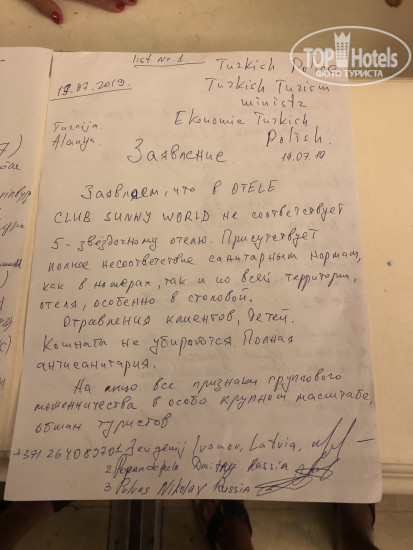 list No. 1
TOP Hotels
ФОТО ТУРИСТА
19.07.2019.
Turkish Police
Turkish Turism
ministr
Turcija
Alanya.
Ekonomic Turkish
Polish.
19.07.19
Заявление
Заявляем, что в OTELE
CLUB SUNNY WORLD не соответствует
5-звёздочному отелю. Присутствует
полное несоответствие санитарным нормам,
как в номерах, так и по всей территории
отеля, особенно в столовой.
Отравления клиентов, детей.
Комната не убираются Полная
антисанитария.
На лицо все признаки группового
мошенничества в особо крупном масштабе,
обман туристов
Jevgenij Ivanov, Latvia,
2 Dmitry Russia
3 Nikolay Russia